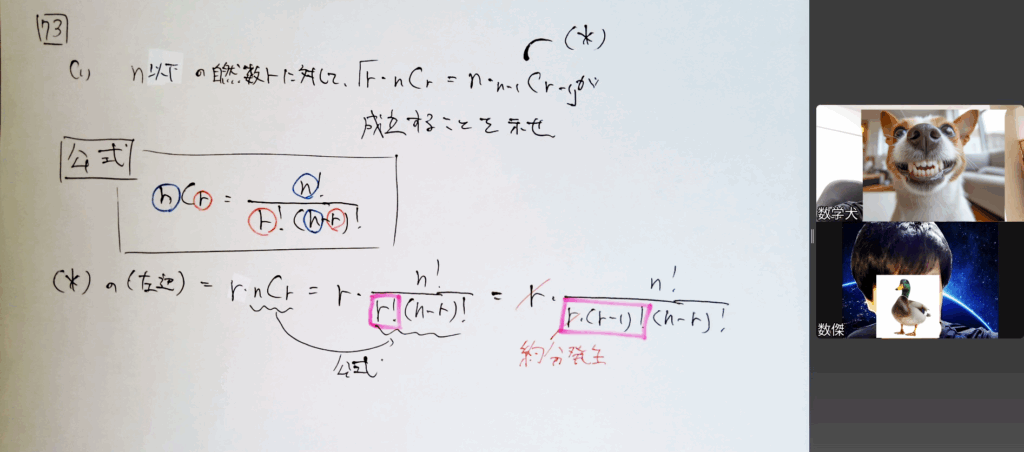 73
(1) n以下の自然数rに対して、「r・nCr = n・n-1Cr-1」が (*)
成立することを示せ
公式
nCr = n! / r!(n-r)!
(*)の(左辺) = r・nCr = r・n! / r!(n-r)! = r・n! / r・(r-1)!(n-r)!
公式
約分発生
数学犬
数傑